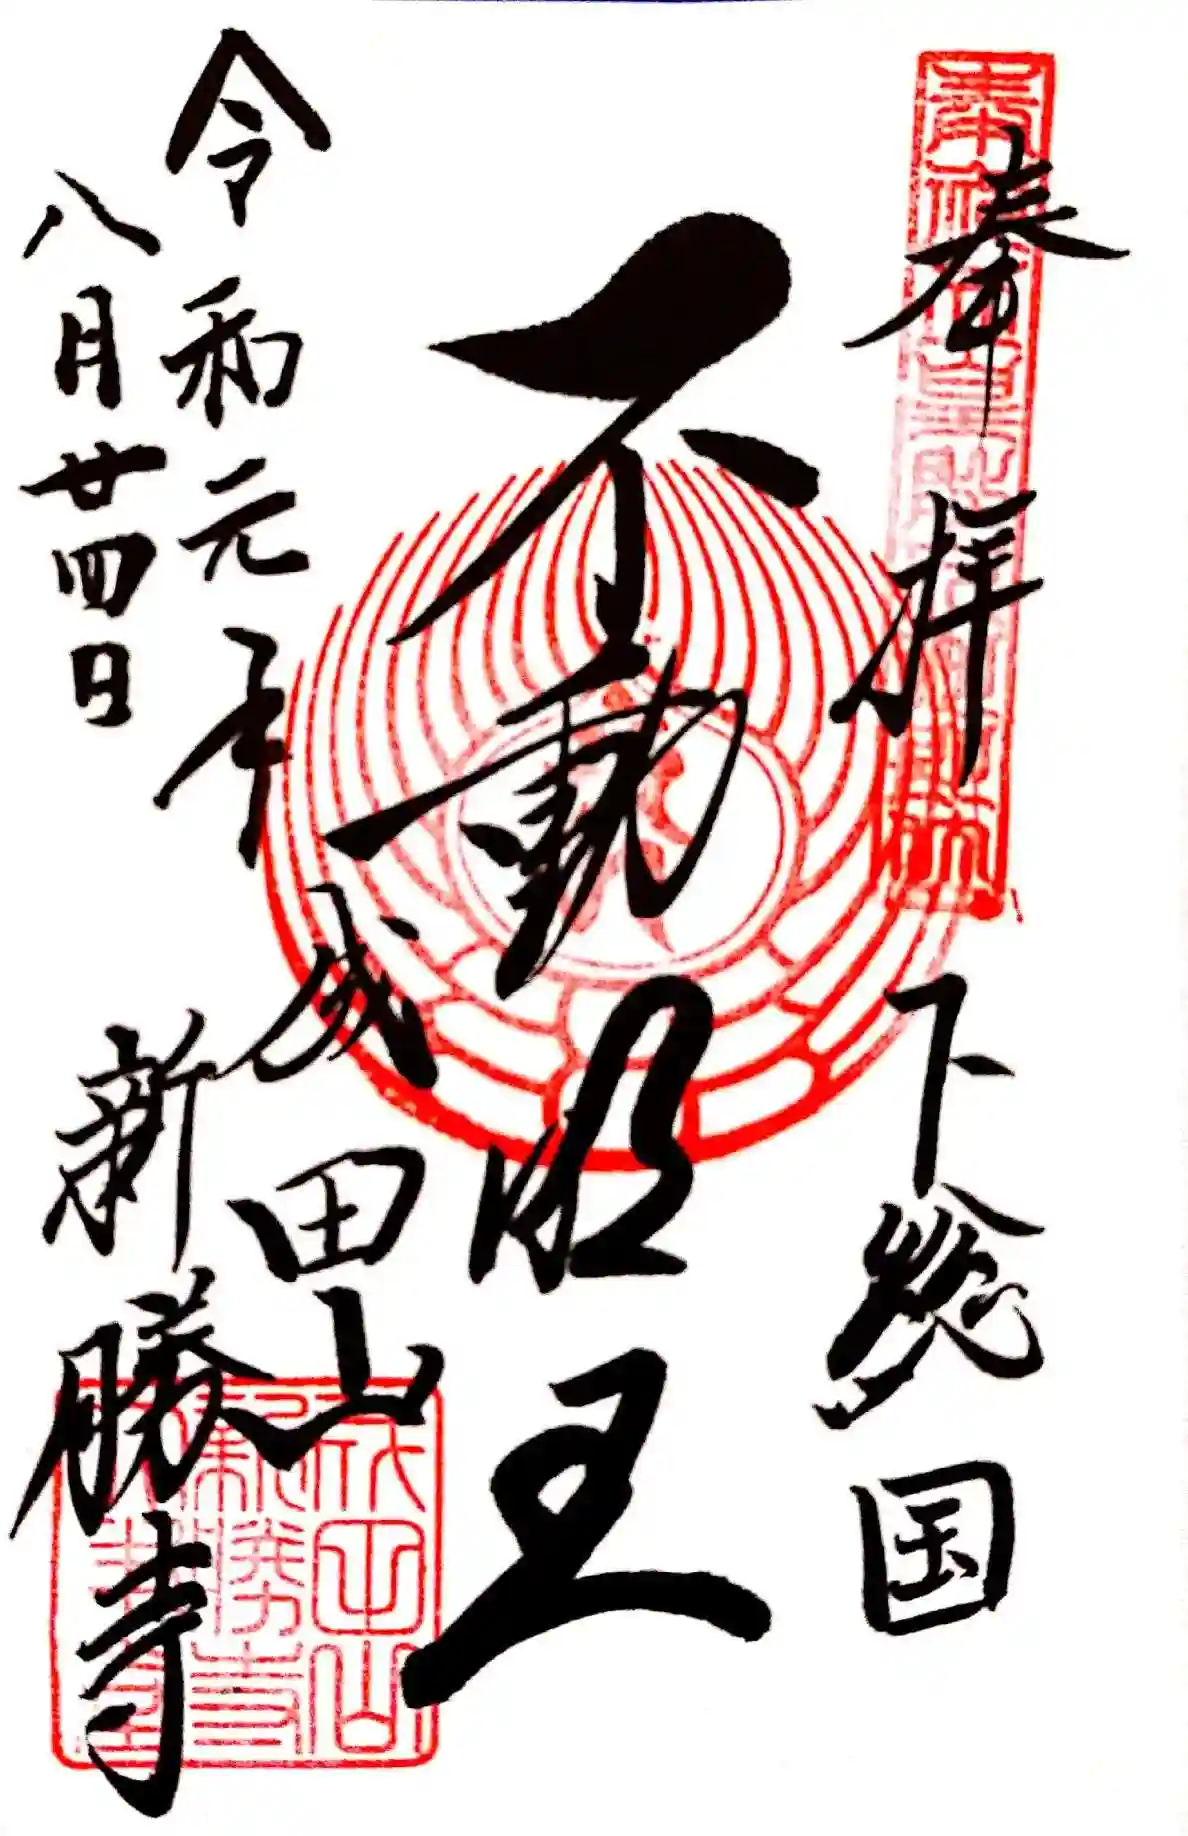 奉拝
下総国
不動明王
成田山
新勝寺
令和元年
八月廿四日
成田山
新勝寺